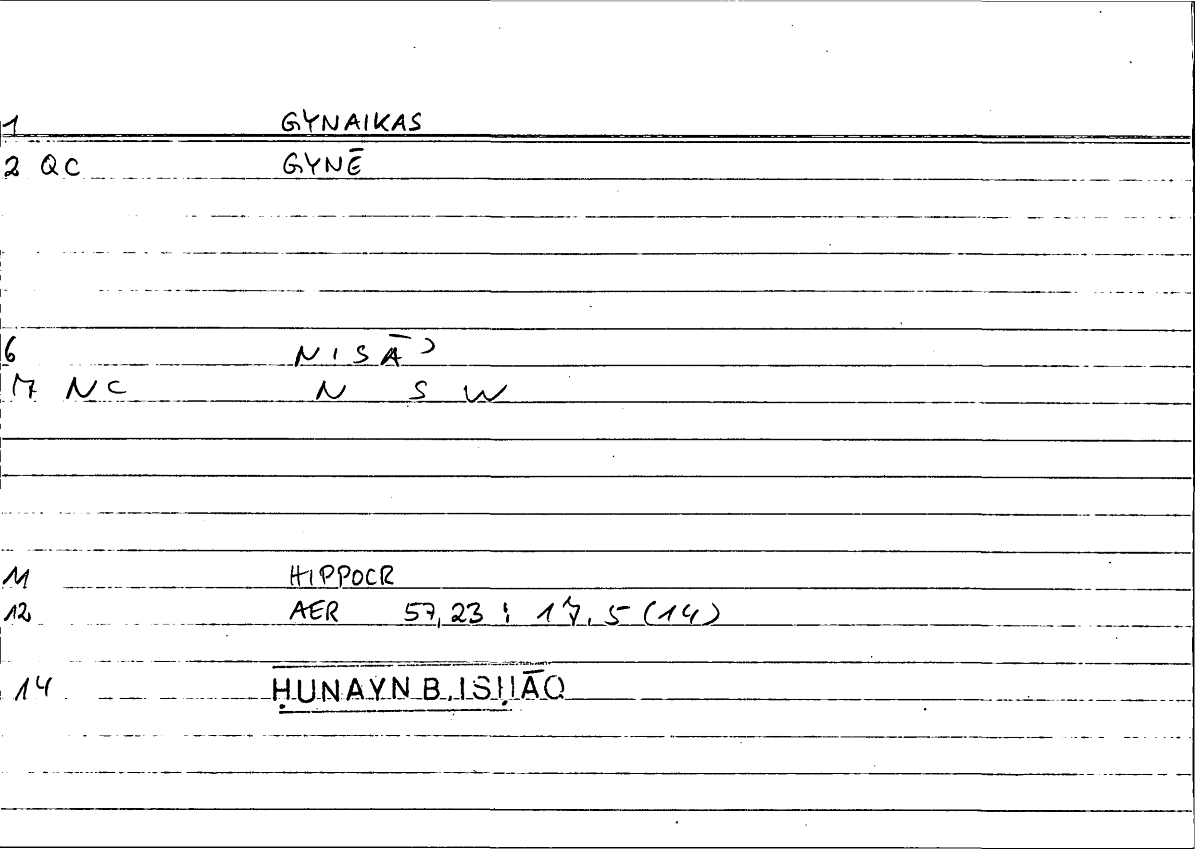 1 GYNAIKAS
2 QC GYNĒ
6 NISĀʾ
17 NC N S W
11 HIPPOCR
12 AER 57,23 : 17,5 (14)
14 ḤUNAYN B. ISḤĀQ